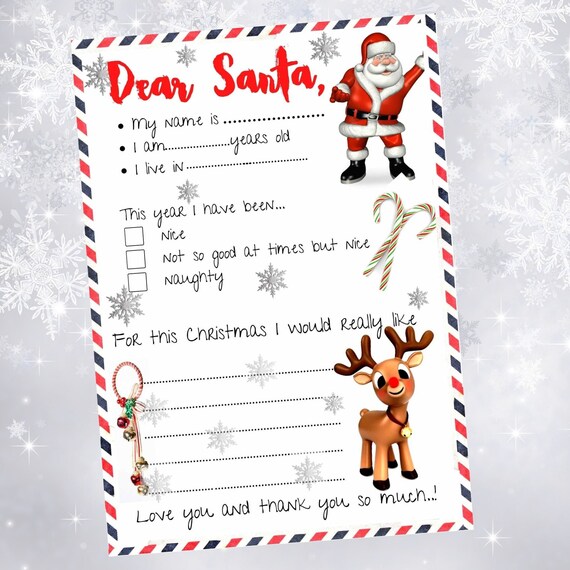 Dear Santa,
• My name is ........................
• I am......................years old
• I live in ....................................
This year I have been...
Nice
Not so good at times but Nice
Naughty
For this Christmas I would really like
Love you and thank you so much..!